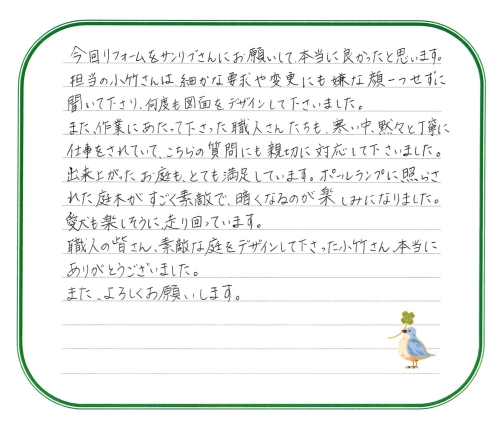 今回リフォームをサンリブさんにお願いして、本当に良かったと思います。
担当の小竹さんは、細かな要求や変更にも嫌な顔一つせずに
聞いて下さり、何度も図面をデザインして下さいました。
また、作業にあたって下さった職人さんたちも、寒い中、黙々と丁寧に
仕事をされていて、こちらの質問にも親切に対応して下さいました。
出来上がったお庭も、とても満足しています。ポールランプに照らさ
れた庭木がすごく素敵で、暗くなるのが楽しみになりました。
愛犬も楽しそうに、走り回っています。
職人の皆さん、素敵な庭をデザインして下さった小竹さん、本当に
ありがとうございました。
また、よろしくお願いします。